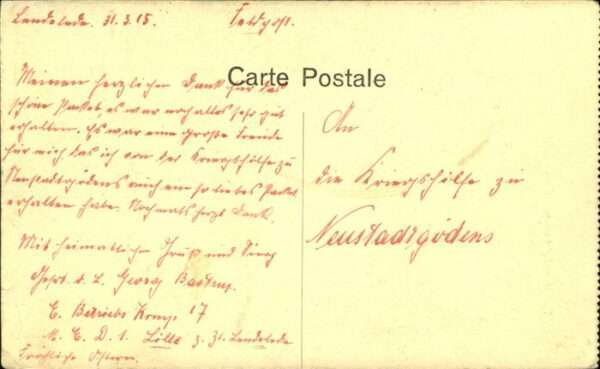 Lendelede. 31.3.15. Feldpost.
Carte Postale
Meinen herzlichen Dank für das
schöne Packet, es war noch alles sehr gut
erhalten. Es war eine große Freude
für mich das ich von der Kriegshilfe zu
Neustadtgödens auch ein so liebes Packet
erhalten habe. Nochmals herzl Dank.
Mit heimatlichen Gruß und
Gefrt d. L. Georg
E. Betriebs Komp. 17
M. E. D. 1. Lille z. Zt. Lendelede
Fröhliche Ostern.
An
die Kriegshilfe zu
Neustadtgödens